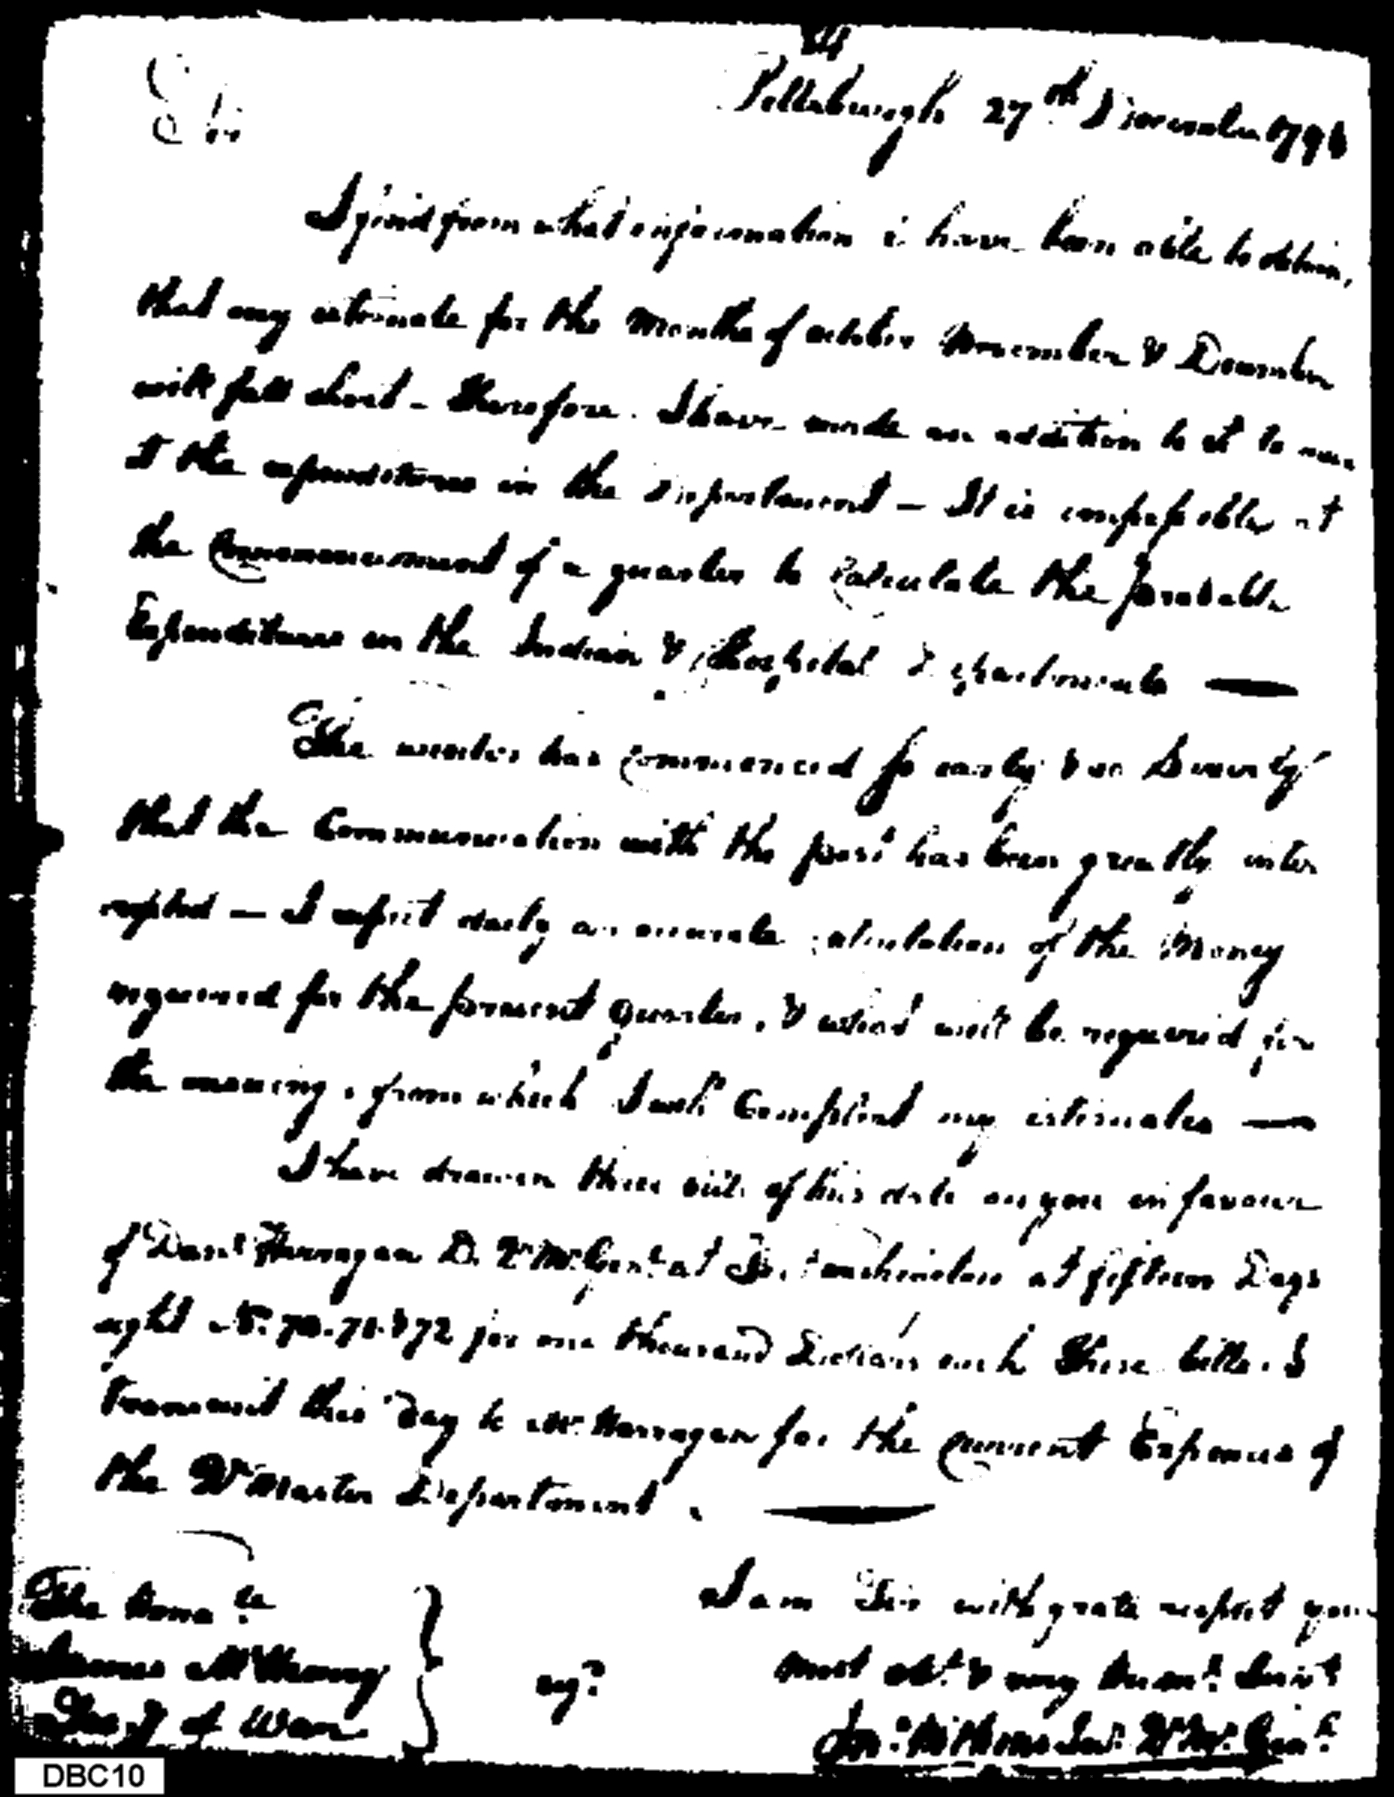 Pittsburgh 27th December 1796
Sir
I find from what information i have been able to obtain,
that my estimate for the Months of october November & December
will fall short - therefore I have made an addition to it to
it the expenditures in the Department - It is impossible at
the Commencement of a quarter to Calculate the probable
Expenditures in the Indian & Hospital Departments —
The winter has commenced so early & so Severely
that the Communication with the post has been greatly inter
rupted — I expect daily an accurate calculation of the Money
required for the present Quarter, & what will be required for
the ensuing, from which I will Compleat my estimates —
I have drawn three bills of this date on you in favour
of Danl Harragan D. Qr Mr. Genl. at at fifteen Days
sight No. 70. 71. & 72 for one thousand Dollars each these bills I
transmit this Day to Mr. Harragan for the Current Expences of
the Qr Master Department.
I am Sir with grate respect your
most obt. & very huml. Servt
Jno. Wilkins Jur. Qr Mr. Genl.
The Honable
James McHenry
Secy of War
DBC10